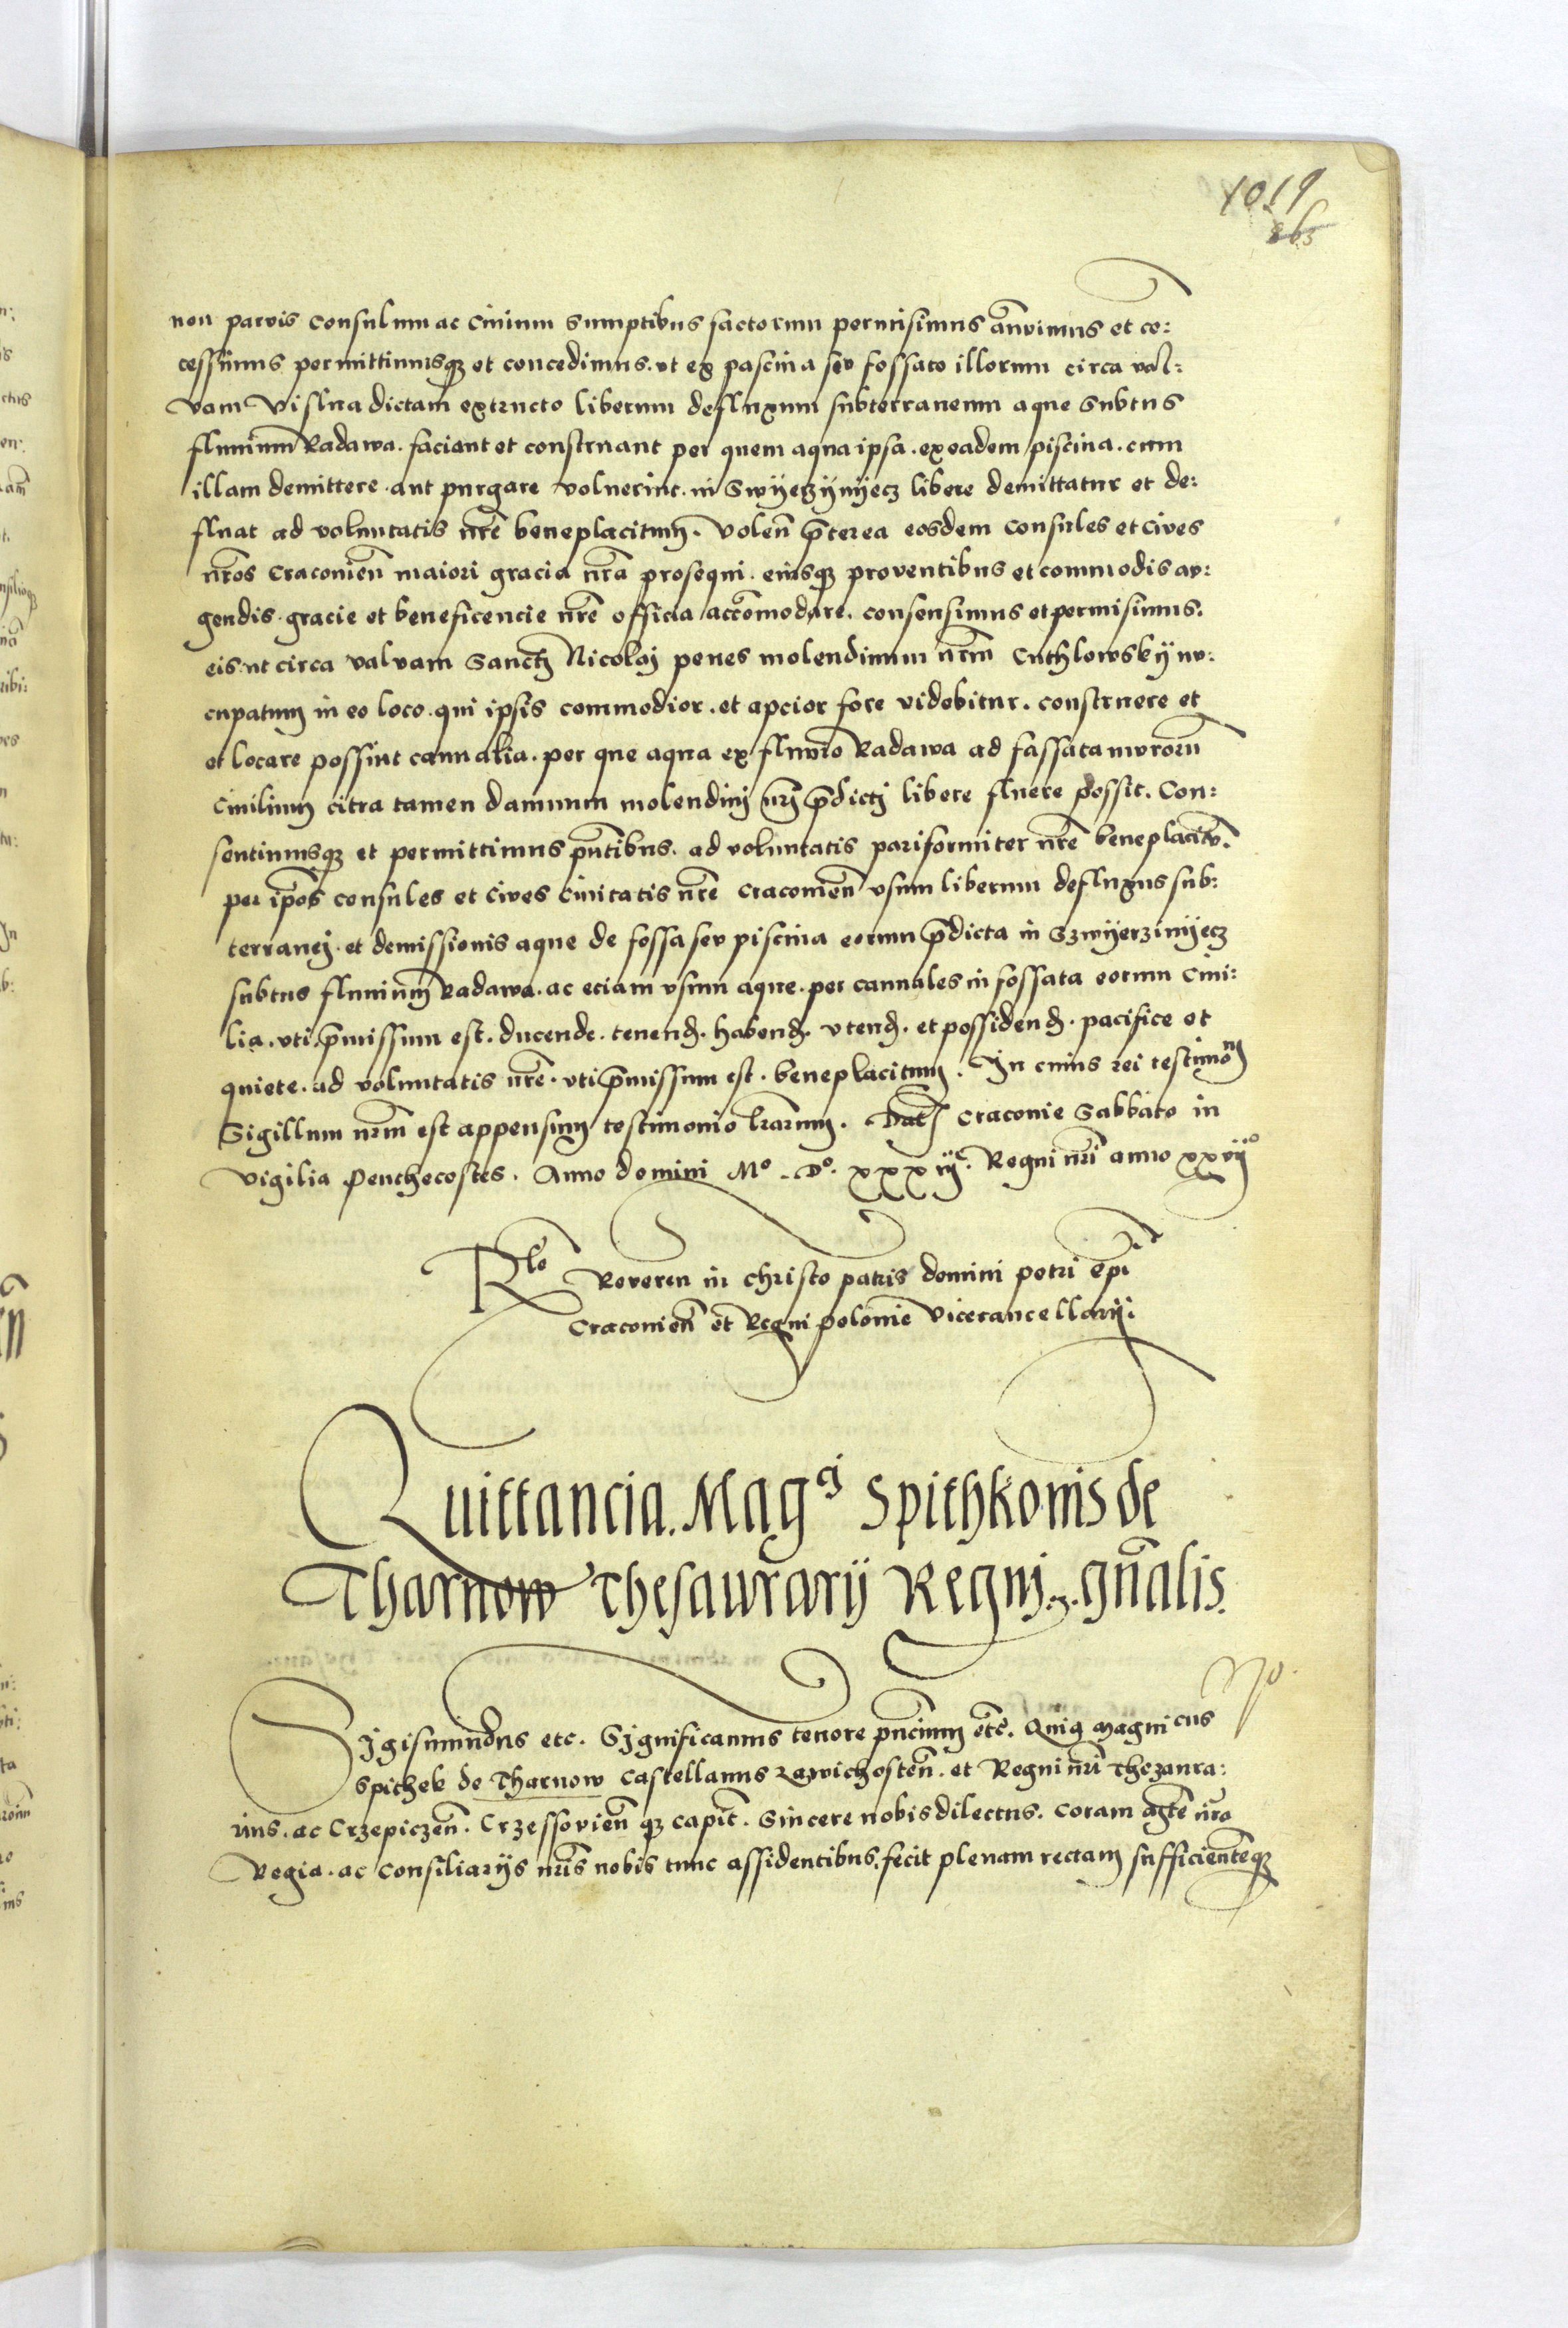 1019
863
non parvis consulum ac civium sumptibus factorum permisimus añvimus et co:
cessimus permittimusqꝫ et concedimus. ut ex pascina seu fossato illorum circa val:
vam Vislna dictam extructo liberum defluxum subterraneum aque subtus
fluuium Radawa. faciant et construant per quem aqua ipsa. ex eadem piscina. cum
illam demittere. aut purgare voluerint. in Swyerzynyecz libere demittatur et de:
fluat ad voluntatis nr̃e beneplacitum. Volen̄ p̄terea eosdem consules et cives
nr̃os Cracovien̄ maiori gracia nr̃a prosequi. eiusqꝫ proventibus et commodis av:
gendis. gracie et beneficencie nr̃e officia accōmodare. consensimus et permisimus.
eis. ut circa valvam Sanctj Nicolaj penes molendinum nr̃m Cuthlowskÿ nv:
cupatum in eo loco. qui ipsis commodior. et apcior fore videbitur. construere et
et locare possint cannalia. per que aqua ex fluvio Radawa ad fassata murorū
Civilium citra tamen damnum molendinj nr̃j p̄dictj libere fluere possit. Con:
sentimusqꝫ et permittimus p̄ntibus. ad voluntatis pariformiter nr̃e beneplacitū.
per ip̄os consules et cives Civitatis nr̃e Cracovien̄ usum liberum defluxus sub:
terranej. et demissionis aque de fossa seu piscina eorum p̄dicta in Szwyerzinyecz
subtus fluuium Radawa. ac eciam usum aque. per cannales in fossata eorum Civi:
lia. uti. p̄missum est. ducende. tenend̄. habend̄. utend̄. et possidend̄. pacifice et
quiete. ad voluntatis nr̃e. uti p̄missum est. beneplacitum. In cuius rei testimoᵐ
Sigillum nr̃m est appensum testimonio lr̃arum. Dat̄ Cracovie Sabbato in
Vigilia Penthecostes. Anno domini Mº. Dº. xxxiijº. Regni nr̃i anno xxvijº
Rˡᵒ Reveren in Christo patris domini Petri ep̄i
Cracovien̄ et Regni Polonie Vicecancellarij:
Quittancia. Magᶜⁱ Spithkonis de
Tharnow Thesaurarij Regni. ꝫ. gn̄alis.
No.
Sigismundus etc. Significamus tenore p̄ncium etc̄. Quiꝫ magnicus
Spithek de Tharnow Castellanus Zawichosten̄. et Regni nr̃i Thezaura:
rius. ac Crzepiczen̄. Crzessovien̄qꝫ capit̄. Sincere nobis dilectus. coram mgt̄e nr̃a
Regia. ac consiliarijs nr̃is nobis tunc assidentibus. fecit plenam rectam sufficientēqꝫ